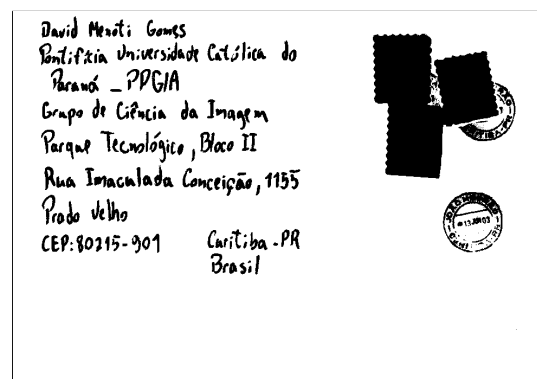 David Menoti Gomes
Pontifícia Universidade Católica do
Paraná _ PPGIA
Grupo de Ciência da Imagem
Parque Tecnológico, Bloco II
Rua Imaculada Conceição, 1155
Prado Velho
CEP: 80215-901 Curitiba - PR
Brasil